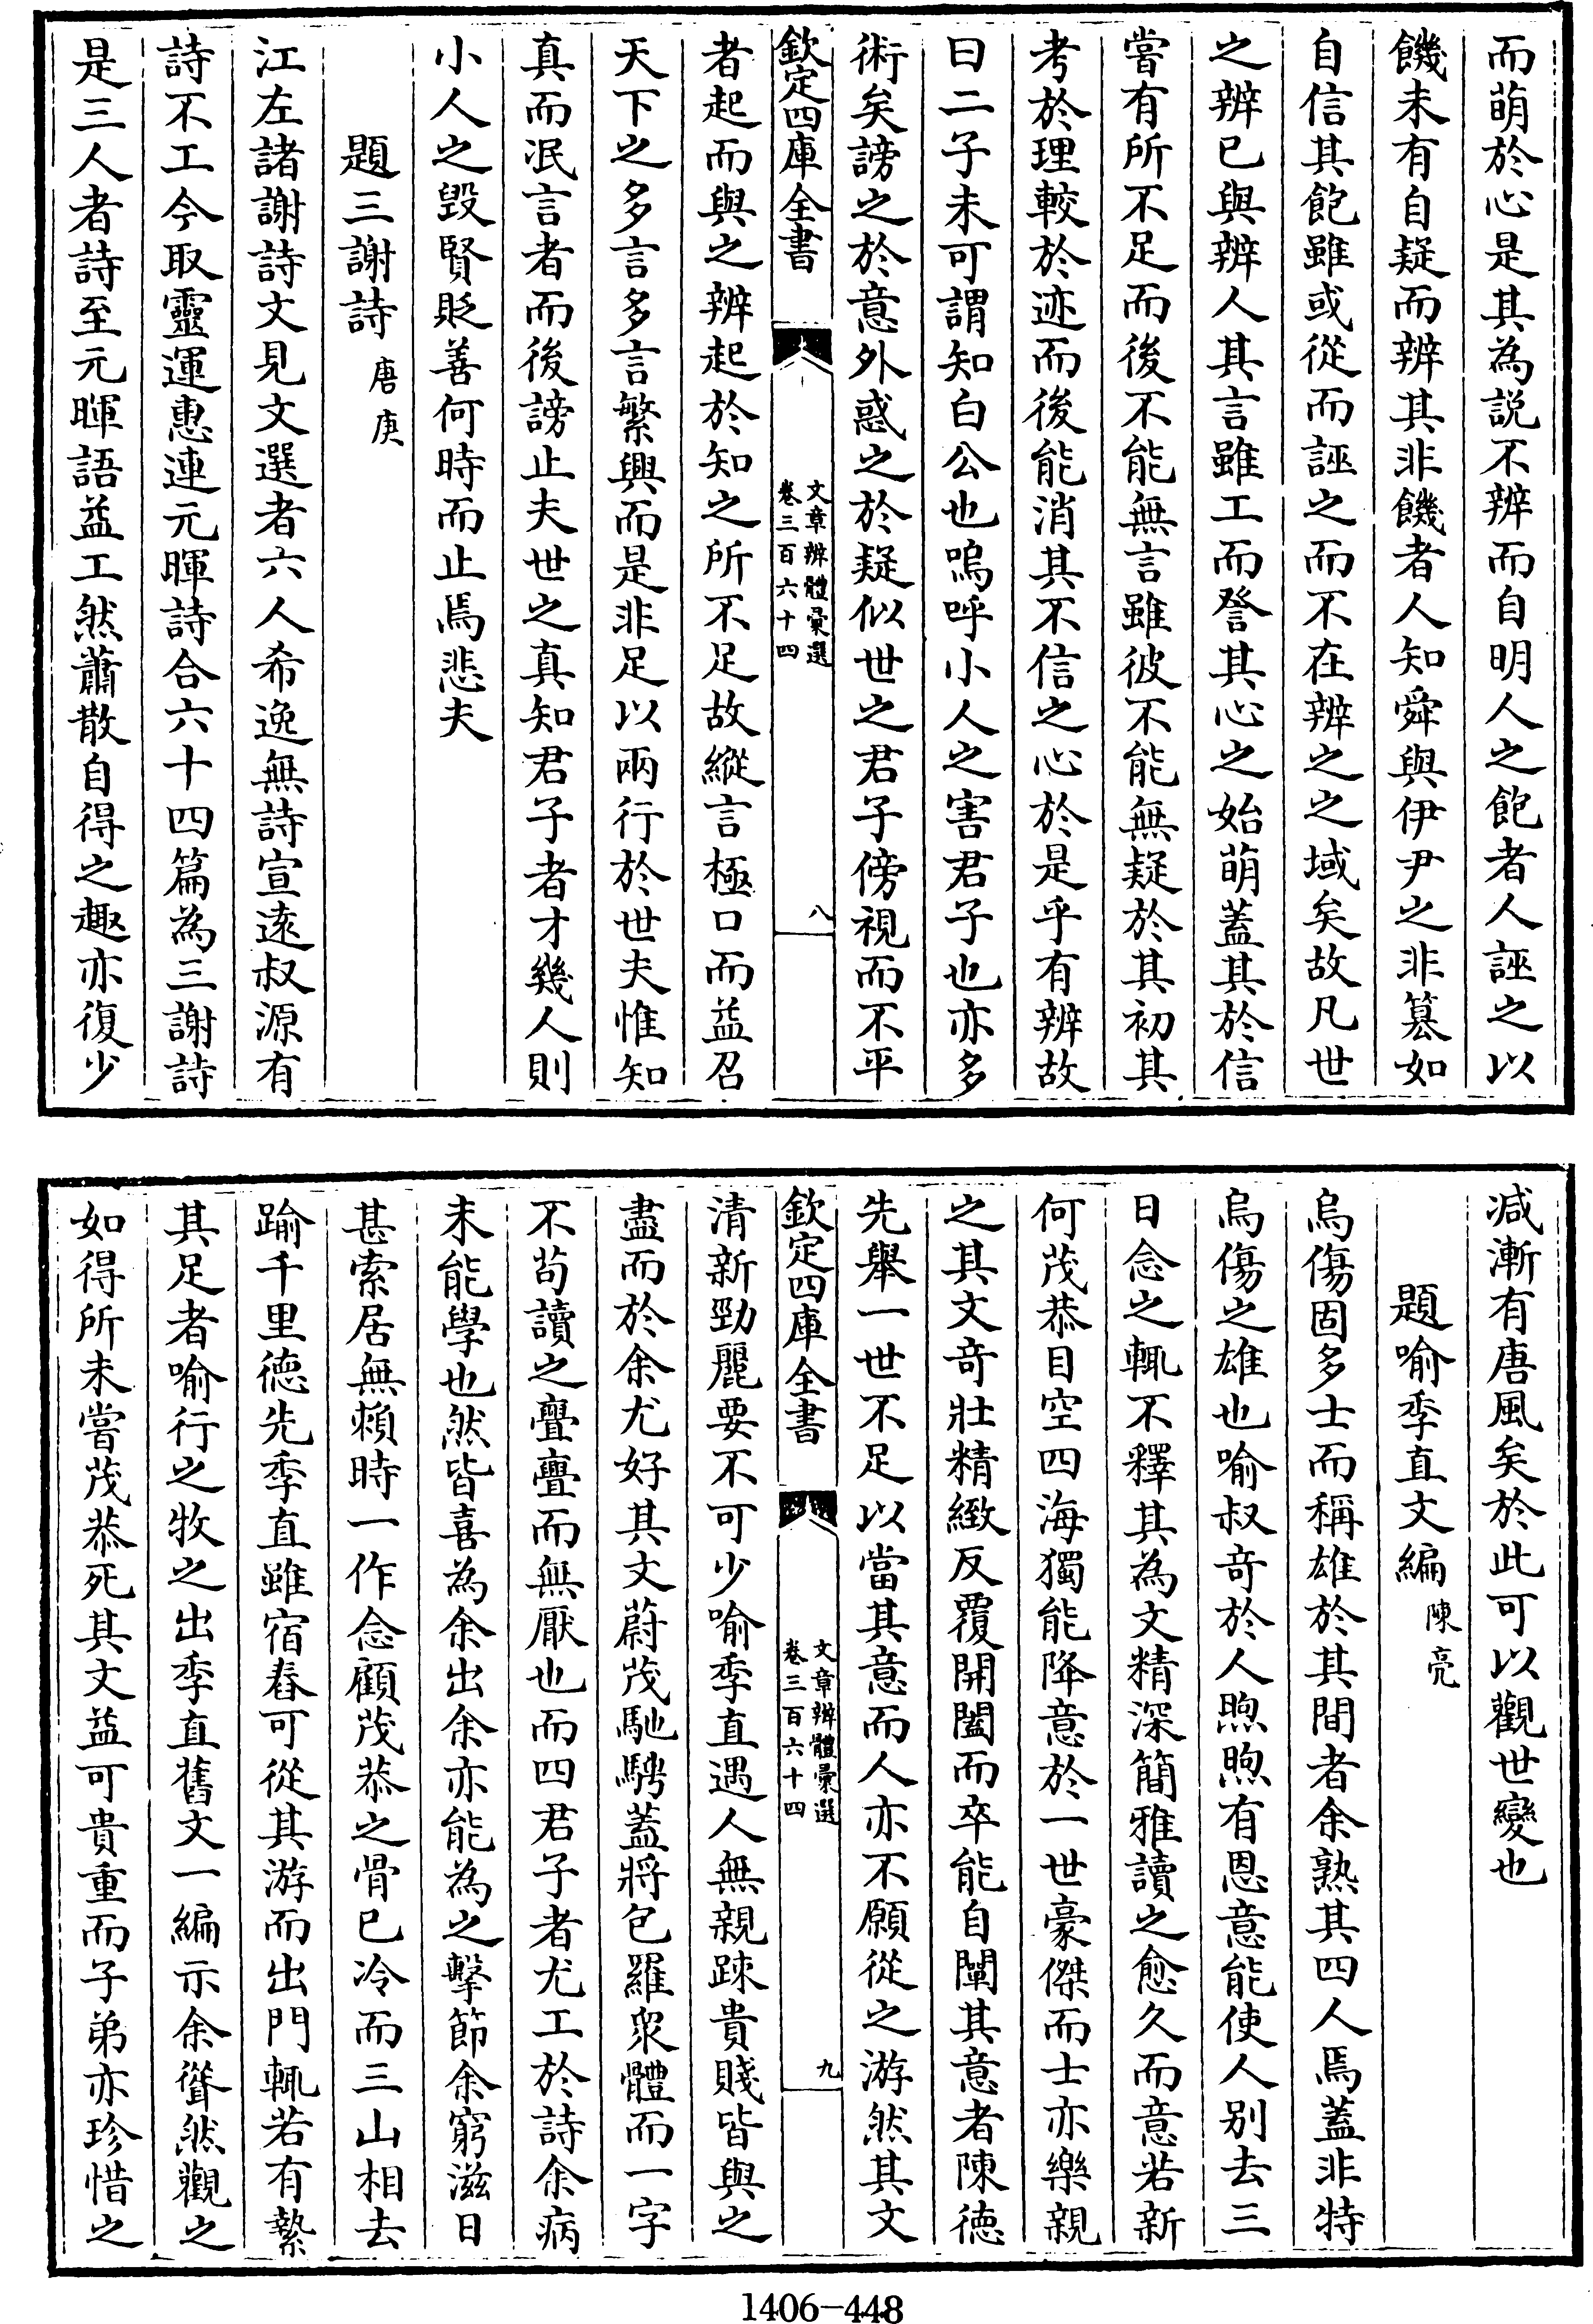 而萌於心是其為説不辨而自明人之飽者人誣之以
饑未有自疑而辨其非饑者人知舜與伊尹之非簒如
自信其飽雖或從而誣之而不在辨之之域矣故凡世
之辨已與辨人其言雖工而詧其心之始萌蓋其於信
嘗有所不足而後不能無言雖彼不能無疑於其初其
考於理較於迹而後能消其不信之心於是乎有辨故
曰二子未可謂知白公也嗚呼小人之害君子也亦多
術矣謗之於意外惑之於疑似世之君子傍視而不平
欽定四庫全書
文章辨體彙選
卷三百六十四
八
者起而與之辨起於知之所不足故縱言極口而益召
天下之多言多言繁興而是非足以兩行於世夫惟知
真而泯言者而後謗止夫世之真知君子者才幾人則
小人之毀賢貶善何時而止焉悲夫
題三謝詩 唐庚
江左諸謝詩文見文選者六人希逸無詩宣遠叔源有
詩不工今取靈運惠連元暉詩合六十四篇為三謝詩
是三人者詩至元暉語益工然蕭散自得之趣亦復少
減漸有唐風矣於此可以觀世變也
題喻季直文編 陳亮
烏傷固多士而稱雄於其間者余熟其四人焉蓋非特
烏傷之雄也喻叔竒於人煦煦有恩意能使人别去三
日念之輒不釋其為文精深簡雅讀之愈久而意若新
何茂恭目空四海獨能降意於一世豪傑而士亦樂親
之其文竒壯精緻反覆開闔而卒能自闡其意者陳德
先舉一世不足以當其意而人亦不願從之游然其文
欽定四庫全書
文章辨體彙選
卷三百六十四
九
清新勁麗要不可少喻季直遇人無親踈貴賤皆與之
盡而於余尤好其文蔚茂馳騁蓋將包羅衆體而一字
不苟讀之亹亹而無厭也而四君子者尤工於詩余病
未能學也然皆喜為余出余亦能為之擊節余窮滋日
甚索居無賴時一作念顧茂恭之骨已冷而三山相去
踰千里德先季直雖宿舂可從其游而出門輒若有縶
其足者喻行之牧之出季直舊文一編示余聳然觀之
如得所未嘗茂恭死其文益可貴重而子弟亦珍惜之
1406-448